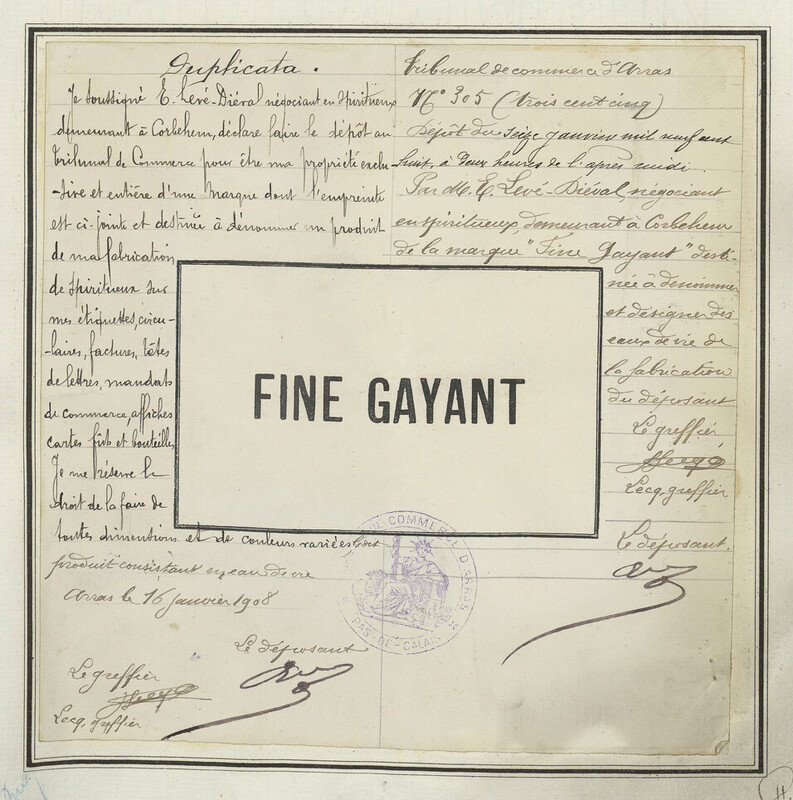 Duplicata.
Je soussigné E. Levé-Diéval négociant en spiritueux
demeurant à Corbehem, déclare faire le dépôt au
Tribunal de Commerce pour être ma propriété exclu-
-sive et entière d'une Marque dont l'empreinte
est ci-jointe et destinée à dénommer un produit
de ma fabrication
de spiritueux sur
mes étiquettes, circu-
-laires, factures, têtes
de lettres, mandats
de commerce, affiches
cartes fûts et bouteilles
Je me réserve le
droit de la faire de
toutes dimensions et de couleurs variées
produit consistant en eau de vie
Arras le 16 Janvier 1908
Le déposant
Le greffier
Lecq, greffier
Tribunal de commerce d'Arras
N° 305 (trois cent cinq)
Dépôt du seize janvier mil neuf cent
huit, à deux heures de l'après midi.
Par M. E. Levé-Diéval, négociant
en spiritueux, demeurant à Corbehem
de la marque "Fine Gayant" desti-
née à dénommer
et designer des
eaux de vie de
la fabrication
du déposant
Le greffier,
Lecq, greffier
Le déposant.
FINE GAYANT
DE COMMERCE D'ARRAS
PAS-DE-CALAIS